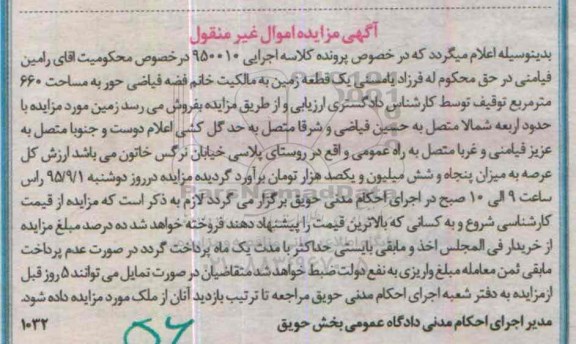 آگهی مزایده اموال غیر منقول
بدینوسیله اعلام میگردد که در خصوص پرونده کلاسه اجرایی ۹۵۰۰۱۰ در خصوص محکومیت اقای رامین
فیامنی در حق محکوم له فرزاد یامسنی یک قطعه زمین به مالکیت خانم فضه فیاضی حور به مساحت ۶۶۰
مترمربع توقیف توسط کارشناس دادگستری ارزیابی و از طریق مزایده بفروش می رسد زمین مورد مزایده با
حدود اربعه شمالا متصل به حسین فیاضی و شرقا متصل به حد گل کشی اعلام دوست و جنوبا متصل به
عزیز فیامنی و غربا متصل به راه عمومی واقع در روستای پلاسی خیابان نرگس خاتون می باشد ارزش کل
عرصه به میزان پنجاه و شش میلیون و یکصد هزار تومان برآورد گردیده مزایده درروز دوشنبه ۹۵/۹/۱ راس
ساعت ۹ الی ۱۰ صبح در اجرای احکام مدنی حویق برگزار می گردد لازم به ذکر است که مزایده از قیمت
کارشناسی شروع و به کسانی که بالاترین قیمت را پیشنهاد دهند فروخته خواهد شد ده درصد مبلغ مزایده
از خریدار فی المجلس اخذ و مابقی بایستی حداکثر با مدت یک ماه پرداخت گردد در صورت عدم پرداخت
مابقی ثمن معامله مبلغ واریزی به نفع دولت ضبط خواهد شد متقاضیان در صورت تمایل می توانند ۵ روز قبل
ازمزایده به دفتر شعبه اجرای احکام مدنی حویق مراجعه تا ترتیب بازدید آنان از ملک مورد مزایده داده شود.
مدیر اجرای احکام مدنی دادگاه عمومی بخش حویق
۱۰۳۲
ParsNamadData